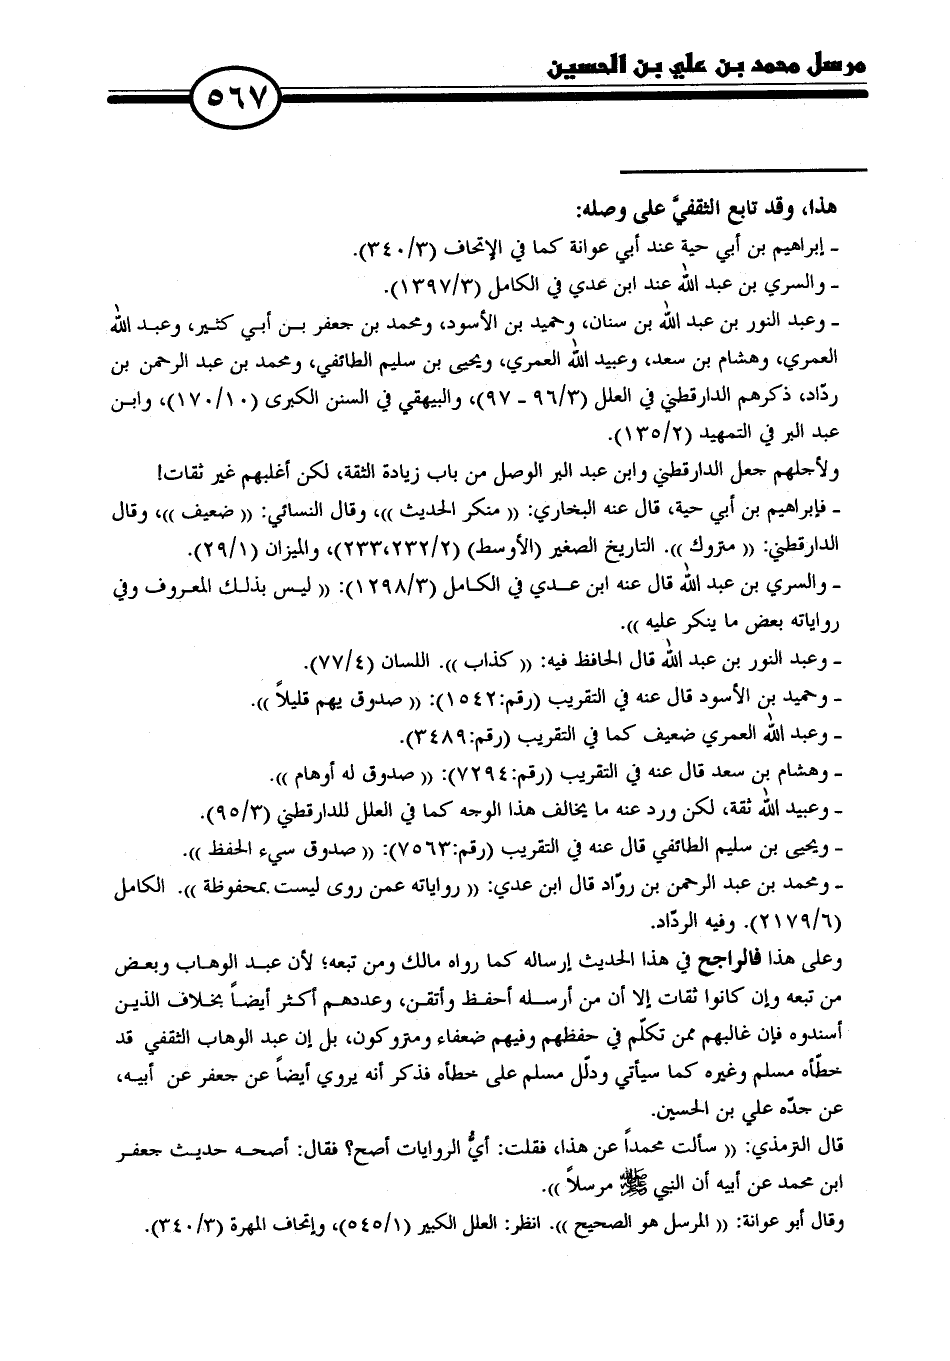 مرسل محمد بن علي بن الحسين
٥٦٧
هذا، وقد تابع الثقفيَّ على وصله:
ـ إبراهيم بن أبي حية عند أبي عوانة كما في الإتحاف (٣٤٠/٣).
ـ والسري بن عبد الله عند ابن عدي في الكامل (١٣٩٧/٣).
ـ وعبد النور بن عبد الله بن سنان، وحميد بن الأسود، ومحمد بن جعفر بـن أبـي كثـير، وعبـد الله
العمري، وهشام بن سعد، وعبيد الله العمري، ويحيى بن سليم الطائفي، ومحمد بن عبد الرحمن بن
ردّاد، ذكرهم الدارقطني في العلل (٩٦/٣ ـ ٩٧)، والبيهقي في السنن الكبرى (١٧٠/١٠)، وابـن
عبد البر في التمهيد (١٣٥/٢).
ولأجلهم جعل الدارقطني وابن عبد البر الوصل من باب زيادة الثقة، لكن أغلبهم غير ثقات!
ـ فإبراهيم بن أبي حية، قال عنه البخاري: (( منكر الحديث ))، وقال النسائي: (( ضعيف ))، وقال
الدارقطني: (( متروك )). التاريخ الصغير (الأوسط) (٢٣٣،٢٣٢/٢)، والميزان (٢٩/١).
ـ والسري بن عبد الله قال عنه ابن عـدي في الكـامل (١٢٩٨/٣): (( ليـس بذلـك المعـروف وفي
رواياته بعض ما ينكر عليه )).
ـ وعبد النور بن عبد الله قال الحافظ فيه: (( كذاب )). اللسان (٧٧/٤).
ـ وحميد بن الأسود قال عنه في التقريب (رقم:١٥٤٢): (( صدوق يهم قليلاً )).
ـ وعبد الله العمري ضعيف كما في التقريب (رقم:٣٤٨٩).
ـ وهشام بن سعد قال عنه في التقريب (رقم:٧٢٩٤): (( صدوق له أوهام )).
ـ وعبيد الله ثقة، لكن ورد عنه ما يخالف هذا الوجه كما في العلل للدارقطني (٩٥/٣).
ـ ويحيى بن سليم الطائفي قال عنه في التقريب (رقم:٧٥٦٣): (( صدوق سيء الحفظ )).
ـ ومحمد بن عبد الرحمن بن روّاد قال ابن عدي: (( رواياته عمن روى ليست بمحفوظة )). الكامل
(٢١٧٩/٦). وفيه الردّاد.
وعلى هذا فالراجح في هذا الحديث إرساله كما رواه مالك ومن تبعه؛ لأن عبـد الوهـاب وبعـض
من تبعه وإن كانوا ثقات إلا أن من أرسـله أحفـظ وأتقـن، وعددهـم أكثـر أيضـاً بخـلاف الذيـن
أسندوه فإن غالبهم ممن تكلّم في حفظهم وفيهم ضعفاء ومتروكون، بل إن عبد الوهاب الثقفي قد
خطّأه مسلم وغيره كما سيأتي ودلّل مسلم على خطأه فذكر أنه يروي أيضاً عن جعفر عن أبيـه،
عن جدّه علي بن الحسين.
قال الترمذي: (( سألت محمداً عن هذا، فقلت: أيُّ الروايات أصح؟ فقال: أصحـه حديـث جعفـر
ابن محمد عن أبيه أن النبي ﷺ مرسلاً )).
وقال أبو عوانة: (( المرسل هو الصحيح )). انظر: العلل الكبير (٥٤٥/١)، وإتحاف المهرة (٣٤٠/٣).